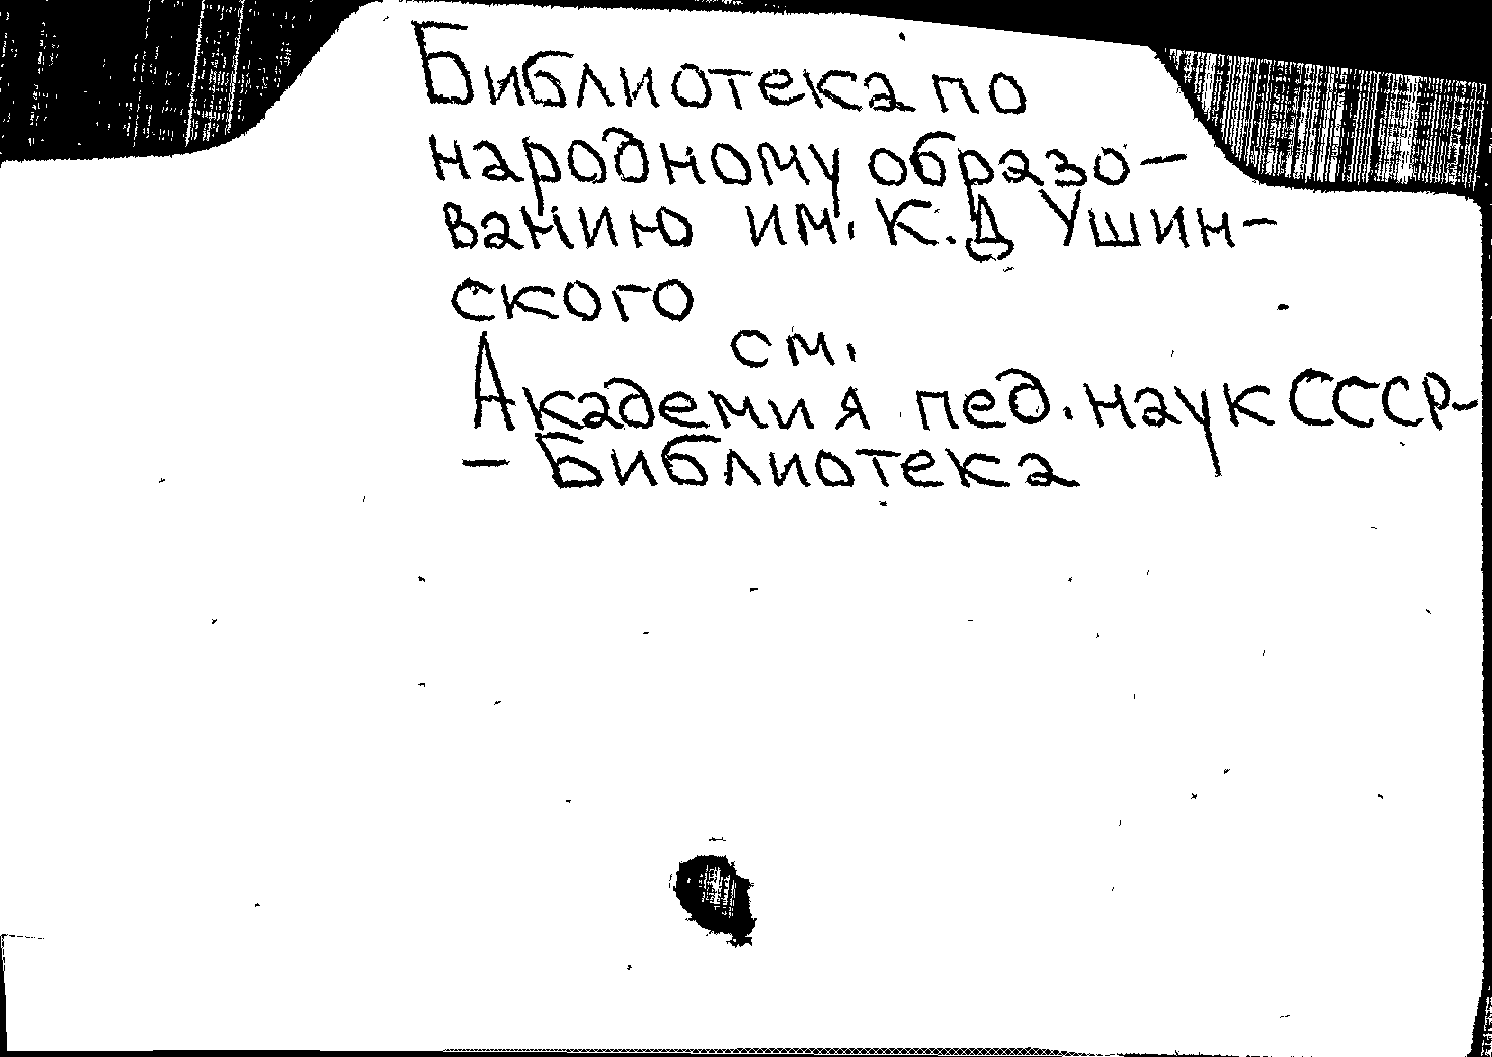 Библиотека по
народному образо-
ванию им. К.Д Ушин-
ского
см.
Академия пед. наук СССР-
- Библиотека